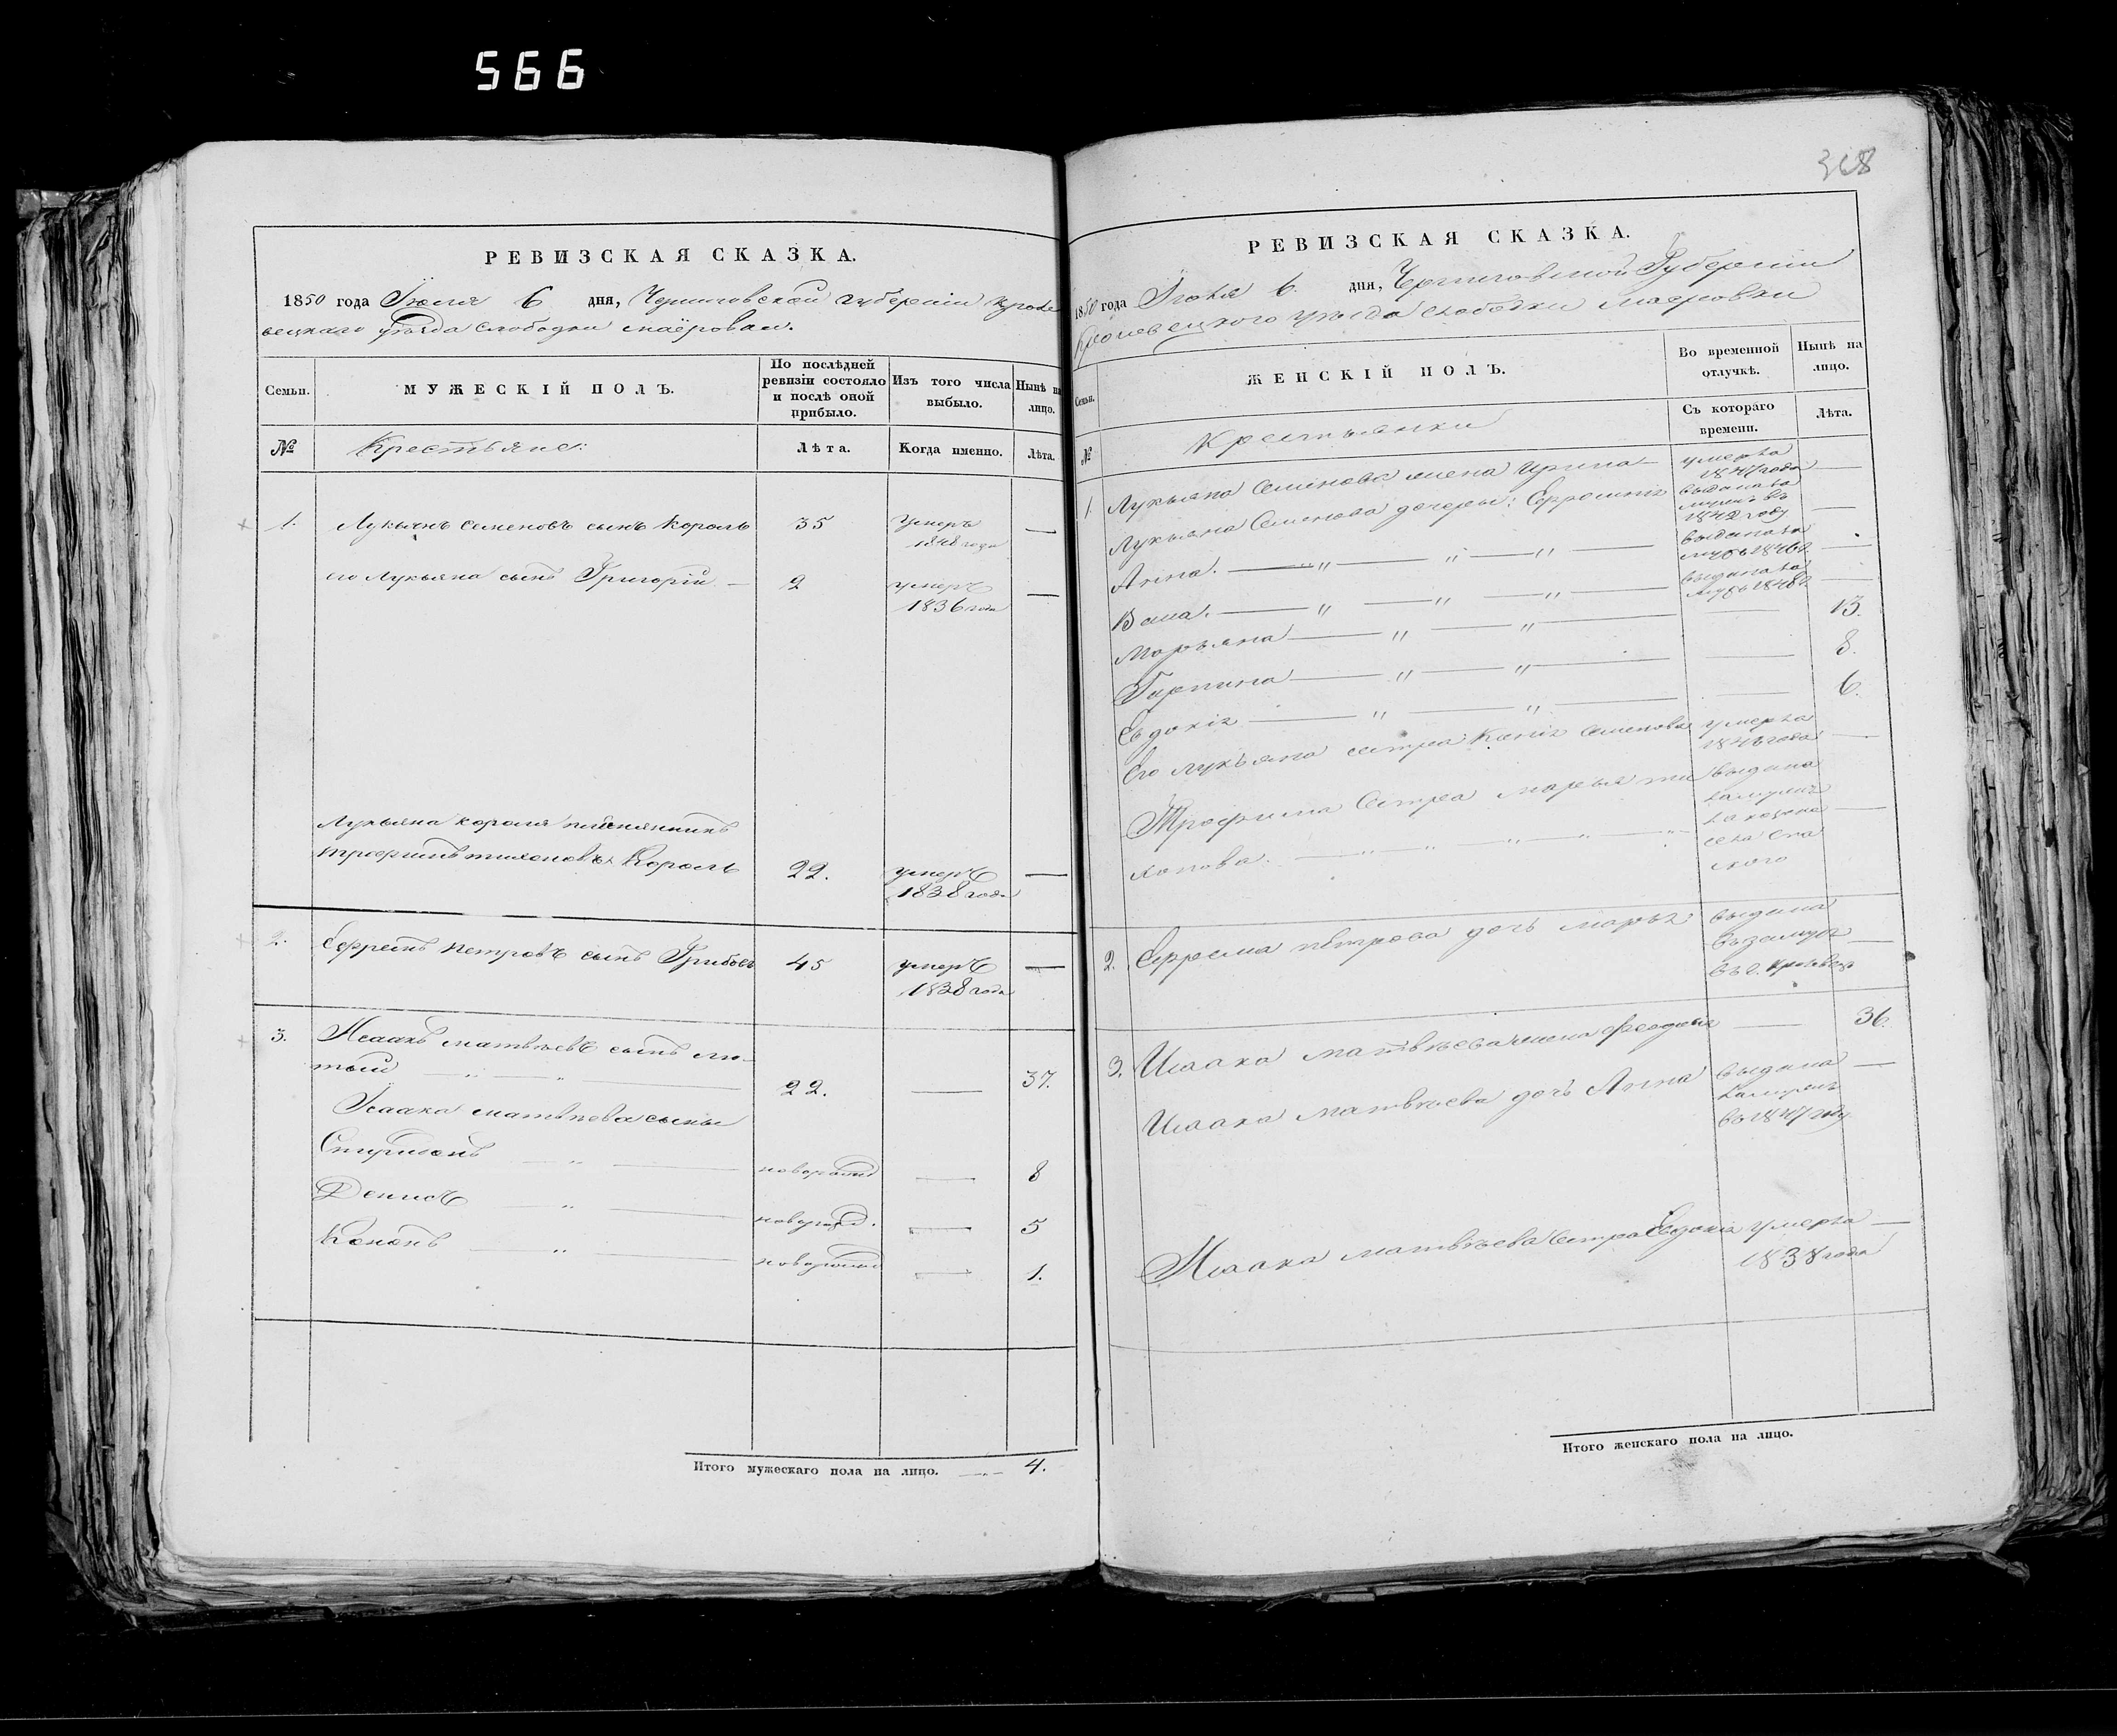 566
РЕВИЗСКАЯ СКАЗКА.
1850 года Іюля 6 дня, Черниговской губерніи Кроле
вецкаго уѣзда слободки маёровки.
Семьи.
МУЖЕСКІЙ ПОЛЪ.
По послѣдней ревизіи состояло и послѣ оной прибыло.
Изъ того числа выбыло.
Нынѣ на лицо.
№
Крестьяне:
Лѣта.
Когда именно.
Лѣта.
1. Лукьянъ Семеновъ сынъ Король 35 умеръ 1848 года —
его Лукьяна сынъ Григорій — 2 умеръ 1836 года —
Лукьяна короля племянникъ
трофимъ тихоновъ Король 22. умеръ 1838 года —
2. Ефремъ Петровъ сынъ 45 умеръ 1838 года —
3. Исаакъ матвѣевъ сынъ лю-
тый — „ — „ — 22. — 37.
Исаака матвѣева сыны
Спиридонъ — „ — новорожд — 8
Денисъ — „ — новорожд. — 5
Кононъ — „ — новорожд — 1.
Итого мужескаго пола на лицо. — 4.
368
РЕВИЗСКАЯ СКАЗКА.
1850 года Іюля 6. дня, Черниговской Губерніи
Кролевецкого уѣзда слободки маеровки
Семьи.
ЖЕНСКІЙ ПОЛЪ.
Во временной отлучкѣ.
Нынѣ на лицо.
№
Крестьянки
Съ котораго времени.
Лѣта.
1. Лукьяна Семенова жена Ирина — умерла 1847 года —
Лукьяна Семенова дочери: Ефросинія выдана за мужъ въ 1842 году —
Анна. — „ — „ — „ — выдана за мужъ 1846 г. —
— „ — „ — „ — выдана за мужъ 1848 г. —
Марьяна — „ — „ — 13.
Гарпина — „ — „ — 8.
Евдокія — „ — „ — 6.
Его лукьяна сестра Ксенія Семенова умерла года —
Трофима Сестра марья ти
хонова. — „ — „ — „ — „ — выдана замужъ за села —
2. Ефрема петрова дочь марья выдана въ замужъ въ г. Кролевецъ —
3. Исаака матвѣева жена — 36.
Исаака матвѣева дочь Анна выдана замужъ въ 1847 году —
Исаака матвѣева сестра Евдокія умерла 1838 года —
Итого женскаго пола на лицо.